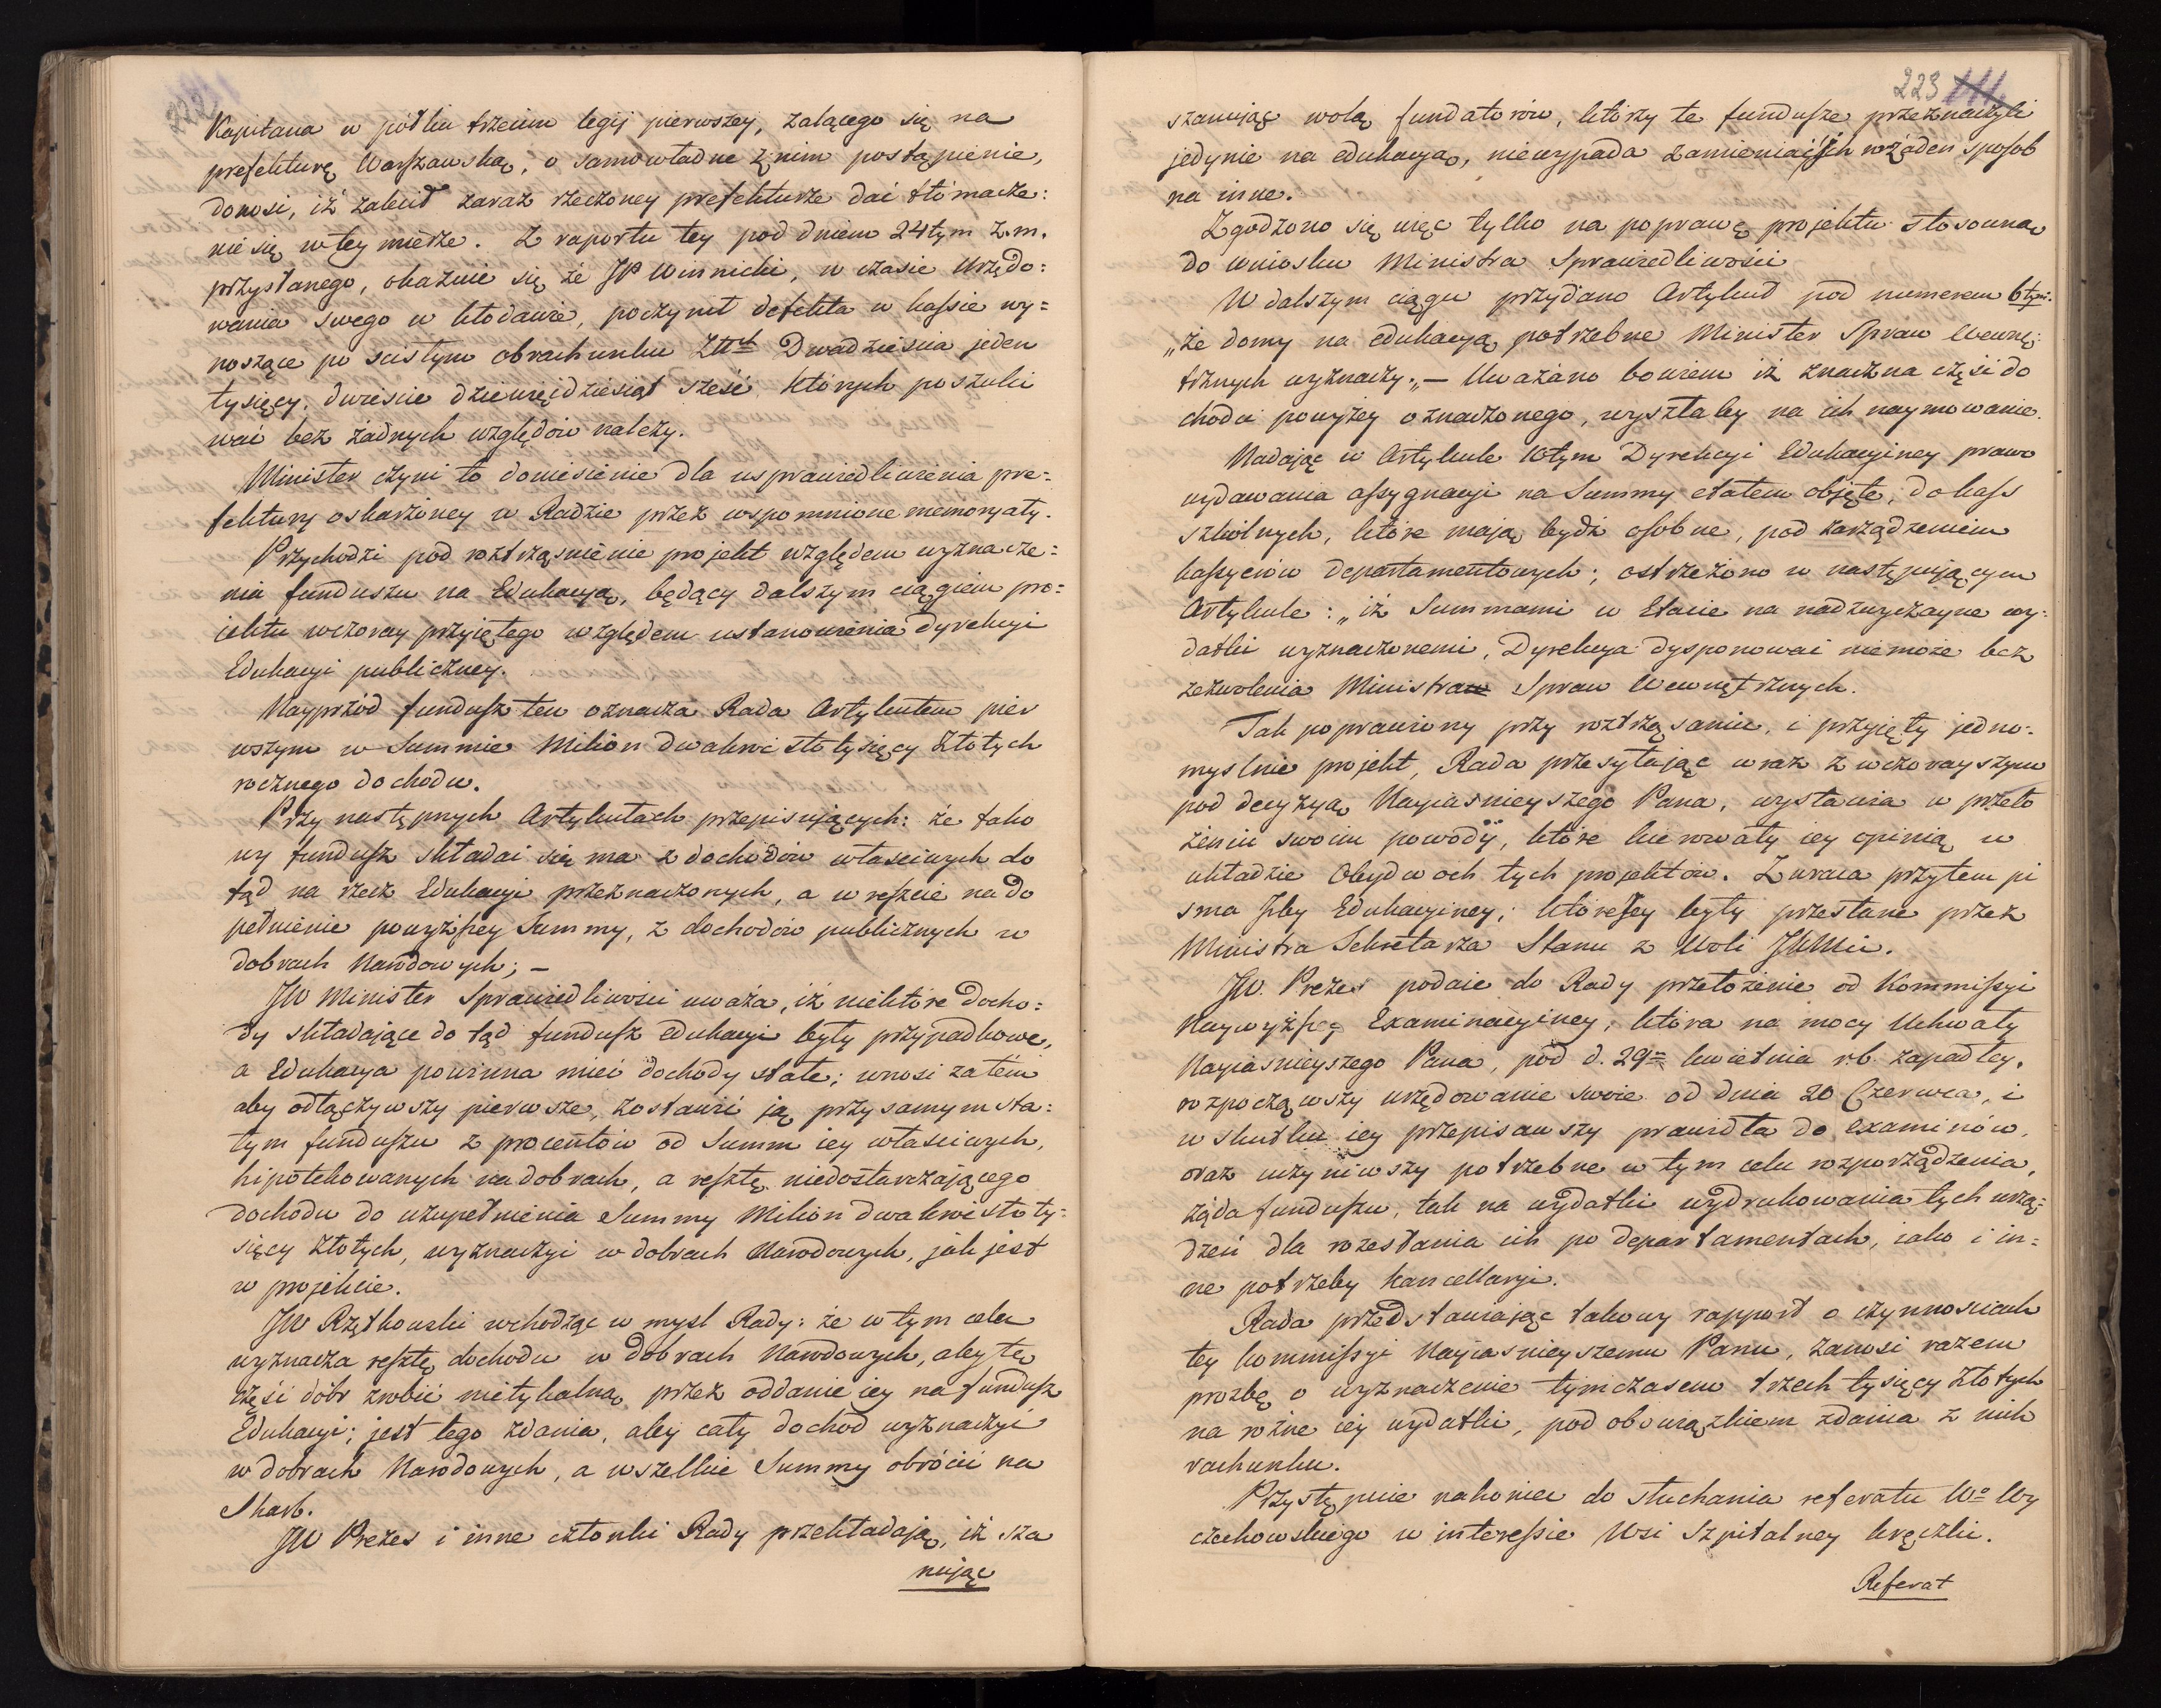 222
Kapitana w półku trzecim legij pierwszey, żalącego się na
prefekturę Warszawską, o samowładne z nim postąpienie,
donosi, iż zalecił zaraz rzeczoney prefekturze dać tłómacze:
nie się w tey mierze. Z raportu tey pod dniem 24tym z. m.
przysłanego, okazuie się że JP Winnicki, w czasie Urzędo:
wania swego w Włodawie, poczynił defekta w kassie wy=
noszące po scisłym obrachunku Złłt Dwadzieścia jeden
tysięcy, dwieście dziewięćdziesiąt sześć, których poszuki
wać bez żadnych względów należy.
Minister czyni to doniesienie dla usprawiedliwienia pre=
fektury oskarżoney w Radzie przez wspomnione memoryały.
Przychodzi pod roztrząsnienie projekt względem wyznacze=
nia funduszu na Edukacyą, będący dalszym ciągiem pro=
jektu wczoray przyiętego względem ustanowienia Dyrekcyi
Edukacyi publiczney.
Nayprzód fundusz ten oznacza Rada Artykułem pier
wszym w Summie Milion dwakroć sto tysięcy Złotych
rocznego dochodu.
Przy następnych Artykułach przepisujących: że tako
wy fundusz składać się ma z dochodów właściwych do
tąd na rzecz Edukacyi przeznaczonych, a w reszcie na do
pełnienie powyższey Summy, z dochodów publicznych w
dobrach Narodowych; —
JW Minister Sprawiedliwości uważa, iż niektóre docho=
dy składające do tąd fundusz edukacyi były przypadkowe,
a Edukacya powinna mieć dochody stałe; wnosi zatém
aby odłączywszy pierwsze, zostawić ją przy samym sta=
łym funduszu z procentów od Summ iey właściwych,
hipotekowanych na dobrach, a resztę niedostarczającego
dochodu do uzupełnienia Summy Milion dwakroć sto ty=
sięcy Złotych, wyznaczyć w dobrach Narodowych, jak jest
w projekcie.
JW Rzętkowski wchodząc w mysl Rady: że w tym celu
wyznacza resztę dochodu w dobrach Narodowych, aby tę
część dóbr zrobić nietykalną przez oddanie iey na fundusz
Edukacyi; jest tego zdania, aby cały dochod wyznaczyć
w dobrach Narodowych, a wszelkie Summy obrócić na
Skarb.
JW Prezes i inne członki Rady przekładają, iż sza
nując
223 111
szanując wolą fundatorów, którzy te fundusze przeznaczyli
jedynie na edukacyą, niewypada zamieniać ich w żaden sposob
na inne.
Zgodzono się więc tylko na poprawę projektu stosowną
do wniosku Ministra Sprawiedliwości
W dalszym ciągu przydano Artykuł pod numerem 6tym.
„że domy na edukacyą potrzebne Minister Spraw Wewnę:
trznych wyznaczy.„ — Uważano bowiem iż znaczna część do
chodu powyżey oznaczonego, wyszłaby na ich naymowanie.
Nadając w Artykule 10tym Dyrekcyi Edukacyiney prawo
wydawania assygnacyi na Summy etatem objęte, do kass
szkolnych, które mają bydź osobne, pod zarządzeniem
kassyerów departamentowych; ostrzeżono w następującym
Artykule: „iż Summami w Etacie na nadzwyczayne wy:
datki wyznaczonemi, Dyrekcya dysponować niemoże bez
zezwolenia Ministra Spraw Wewnętrznych.
Tak poprawiony przy roztrząsaniu, i przyięty jedno:
myslnie projekt, Rada przesyłając wraz z wczorayszym
pod decyzyą Nayiasnieyszego Pana, wystawia w przeło
żeniu swoim powody, które kierowały iey opinią w
układzie Obydwóch tych projektów. Zwraca przytem pi
sma Jzby Edukacyiney; które Jey były przesłane przez
Ministra Sekretarza Stanu z Woli JKMci.
JW. Prezes podaie do Rady przełożenie od Kommissyi
Naywyższey Examinacyiney, która na mocy Uchwały
Nayiasnieyszego Pana, pod d. 29m kwietnia r.b. zapadłey,
rozpocząwszy urzędowanie swoie od dnia 20 Czerwca, i
w skutku iey przepisawszy prawidła do examinów,
oraz uczyniwszy potrzebne w tym celu rozporządzenia,
żąda funduszu, tak na wydatki wydrukowania tych urzą=
dzeń dla rozesłania ich po departamentach, iako i in=
ne potrzeby kancellaryi.
Rada przedstawiając takowy rapport o czynnościach
tey kommissyi Nayiasnieyszemu Panu, zanosi razem
prozbę o wyznaczenie tymczasem trzech tysięcy Złotych
na rożne iey wydatki, pod obowiązkiem zdania z nich
rachunku.
Przystępuie nakoniec do słuchania referatu Wo Wy
czechowskiego w interessie Wsi Szpitalney Kręczki.
Referat